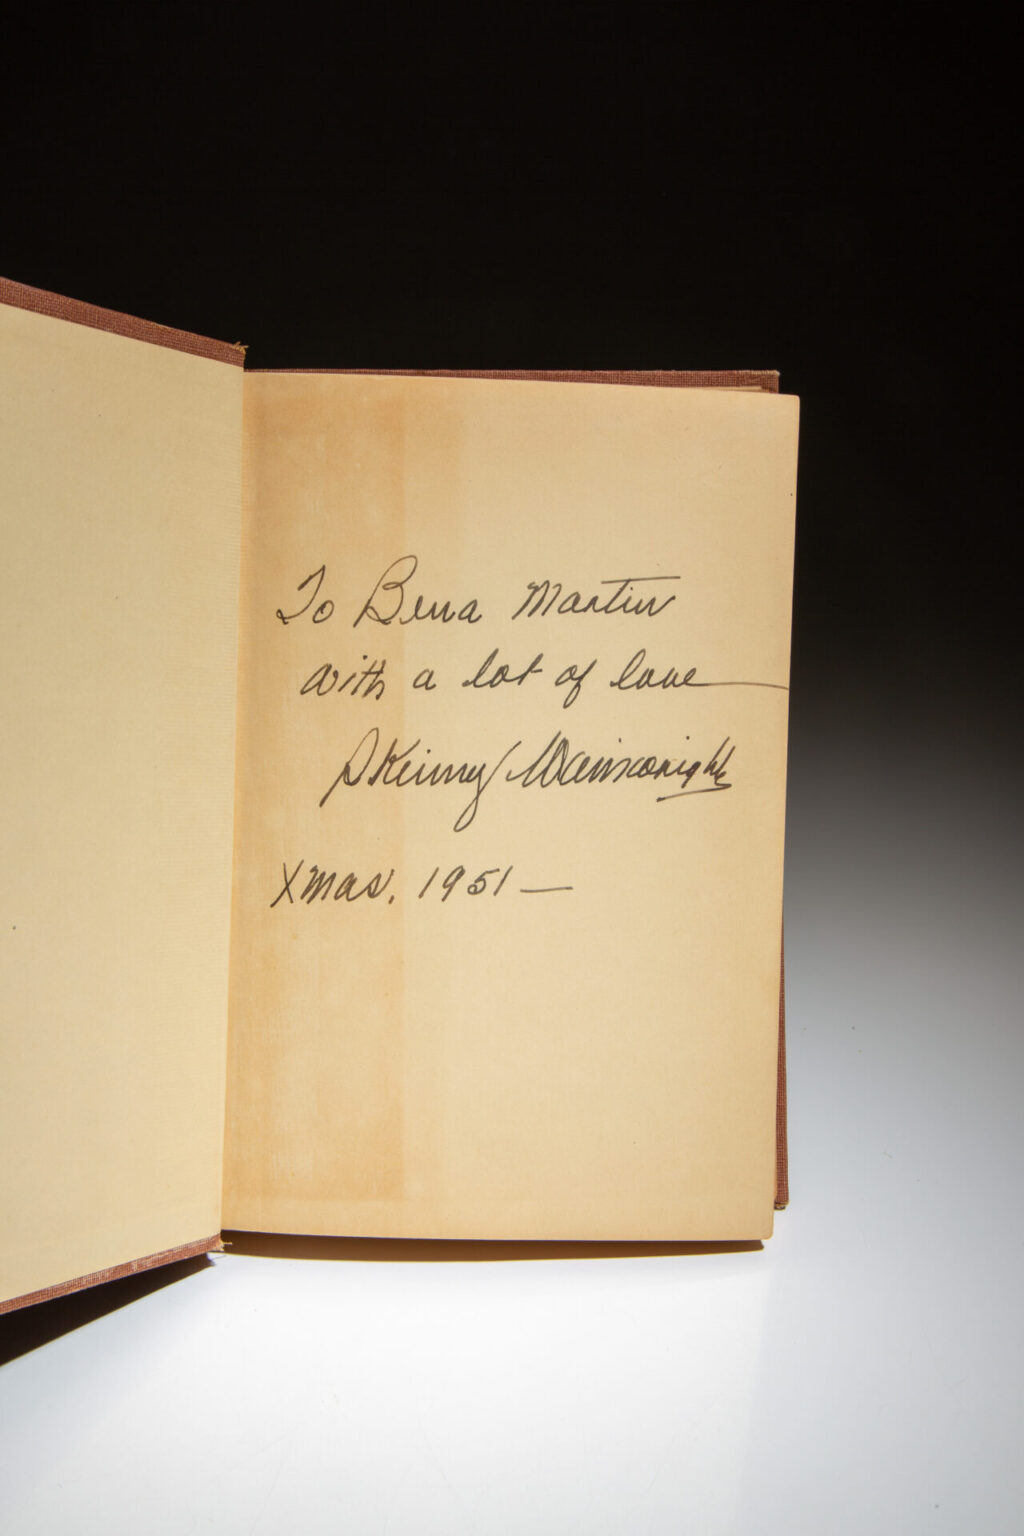 To Bena Martin
with a lot of love
Skinny Wainwright
Xmas. 1951 —